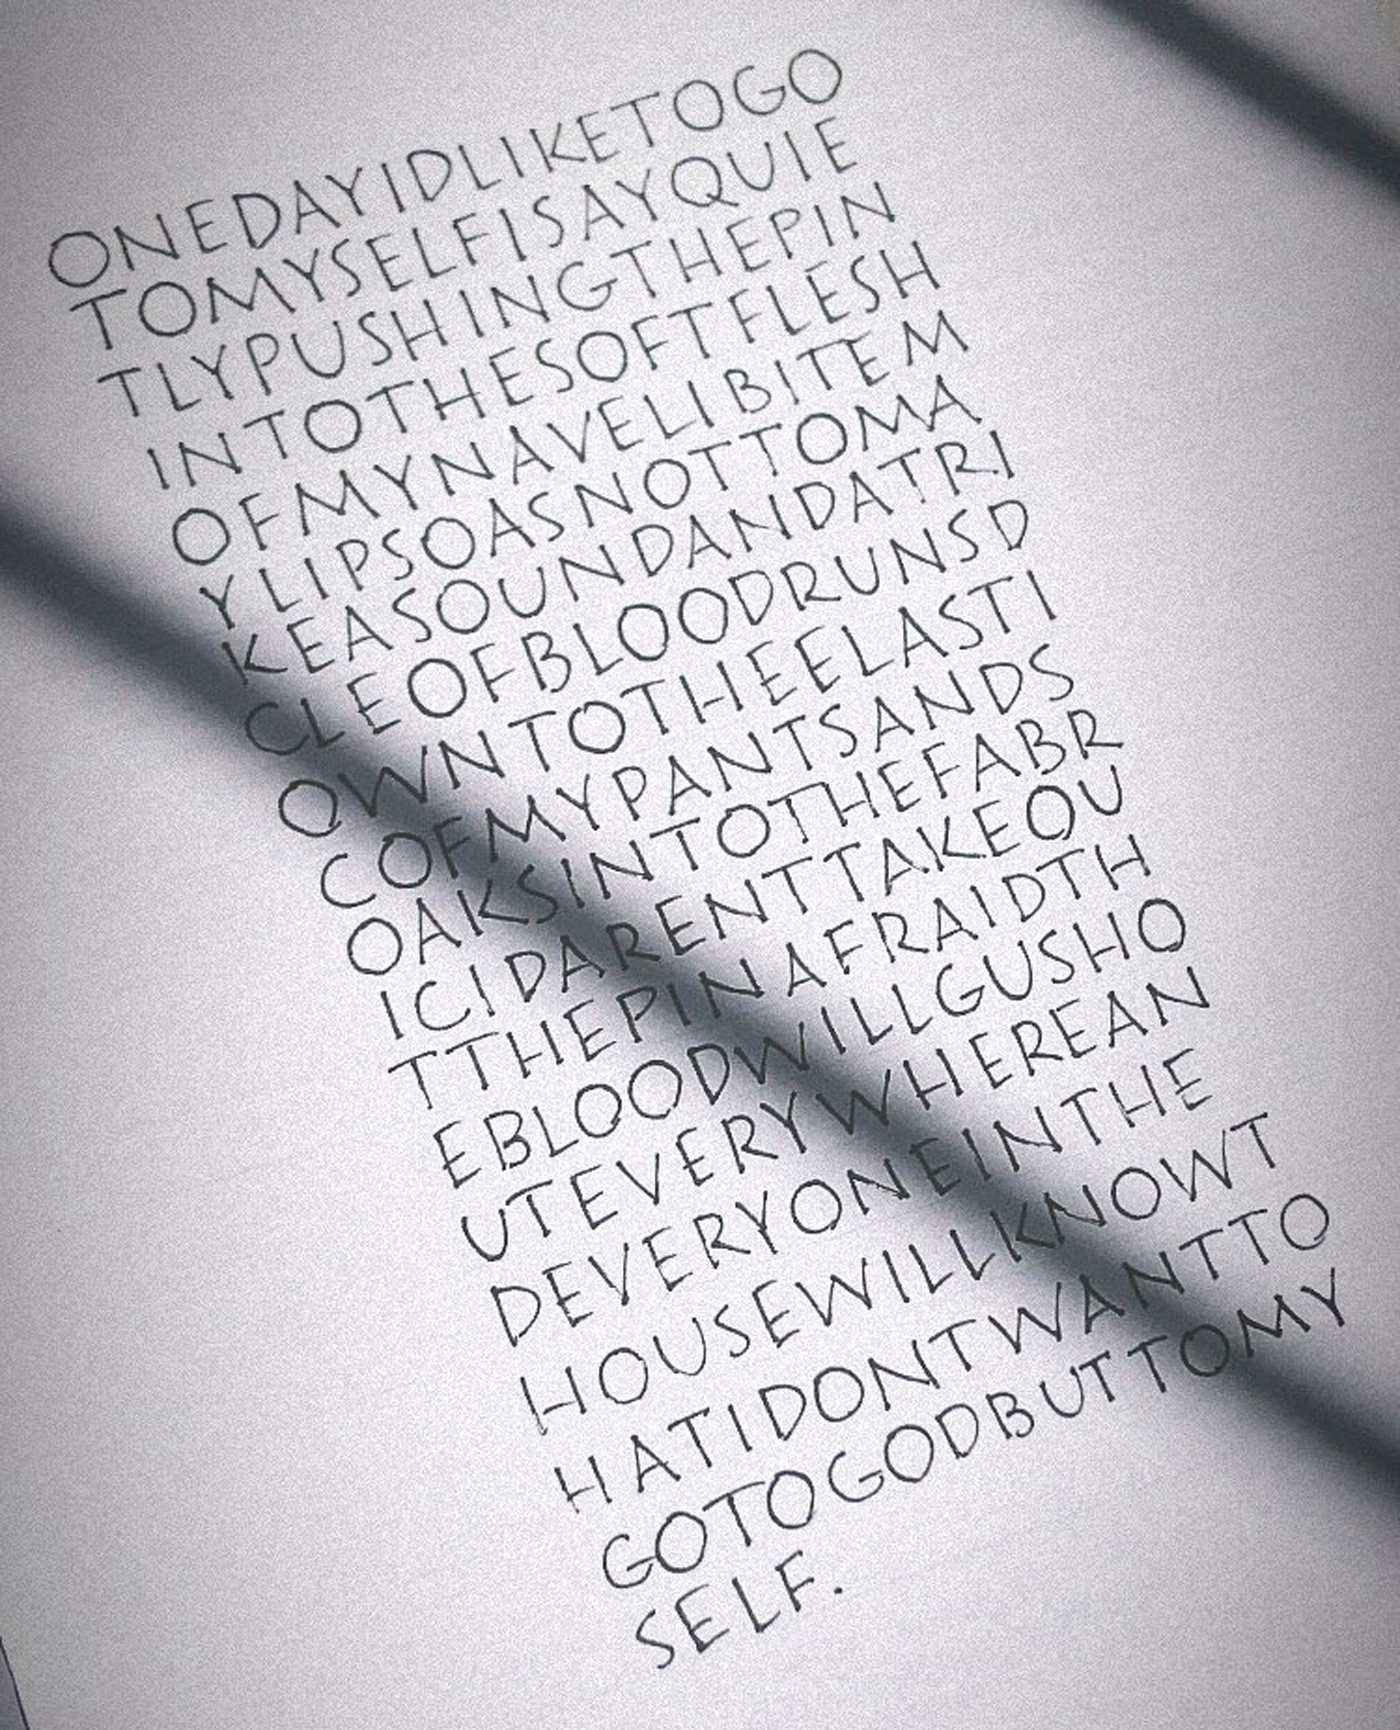 ONEDAYIDLIKETOGO
TOMYSELFISAYQUIE
TLYPUSHINGTHEPIN
INTOTHESOFTFLESH
OFMYNAVELIBITEM
YLIPSOASNOTTOMA
KEASOUNDANDATRI
CLEOFBLOODRUNSD
OWNTOTHEELASTI
COFMYPANTSANDS
OAKSINTOTHEFABR
ICIDARENTTAKEOU
TTHEPINAFRAIDTH
EBLOODWILLGUSHO
UTEVERYWHEREAN
DEVERYONEINTHE
HOUSEWILLKNOWT
HATIDONTWANTTO
GOTOGODBUTTOMY
SELF.